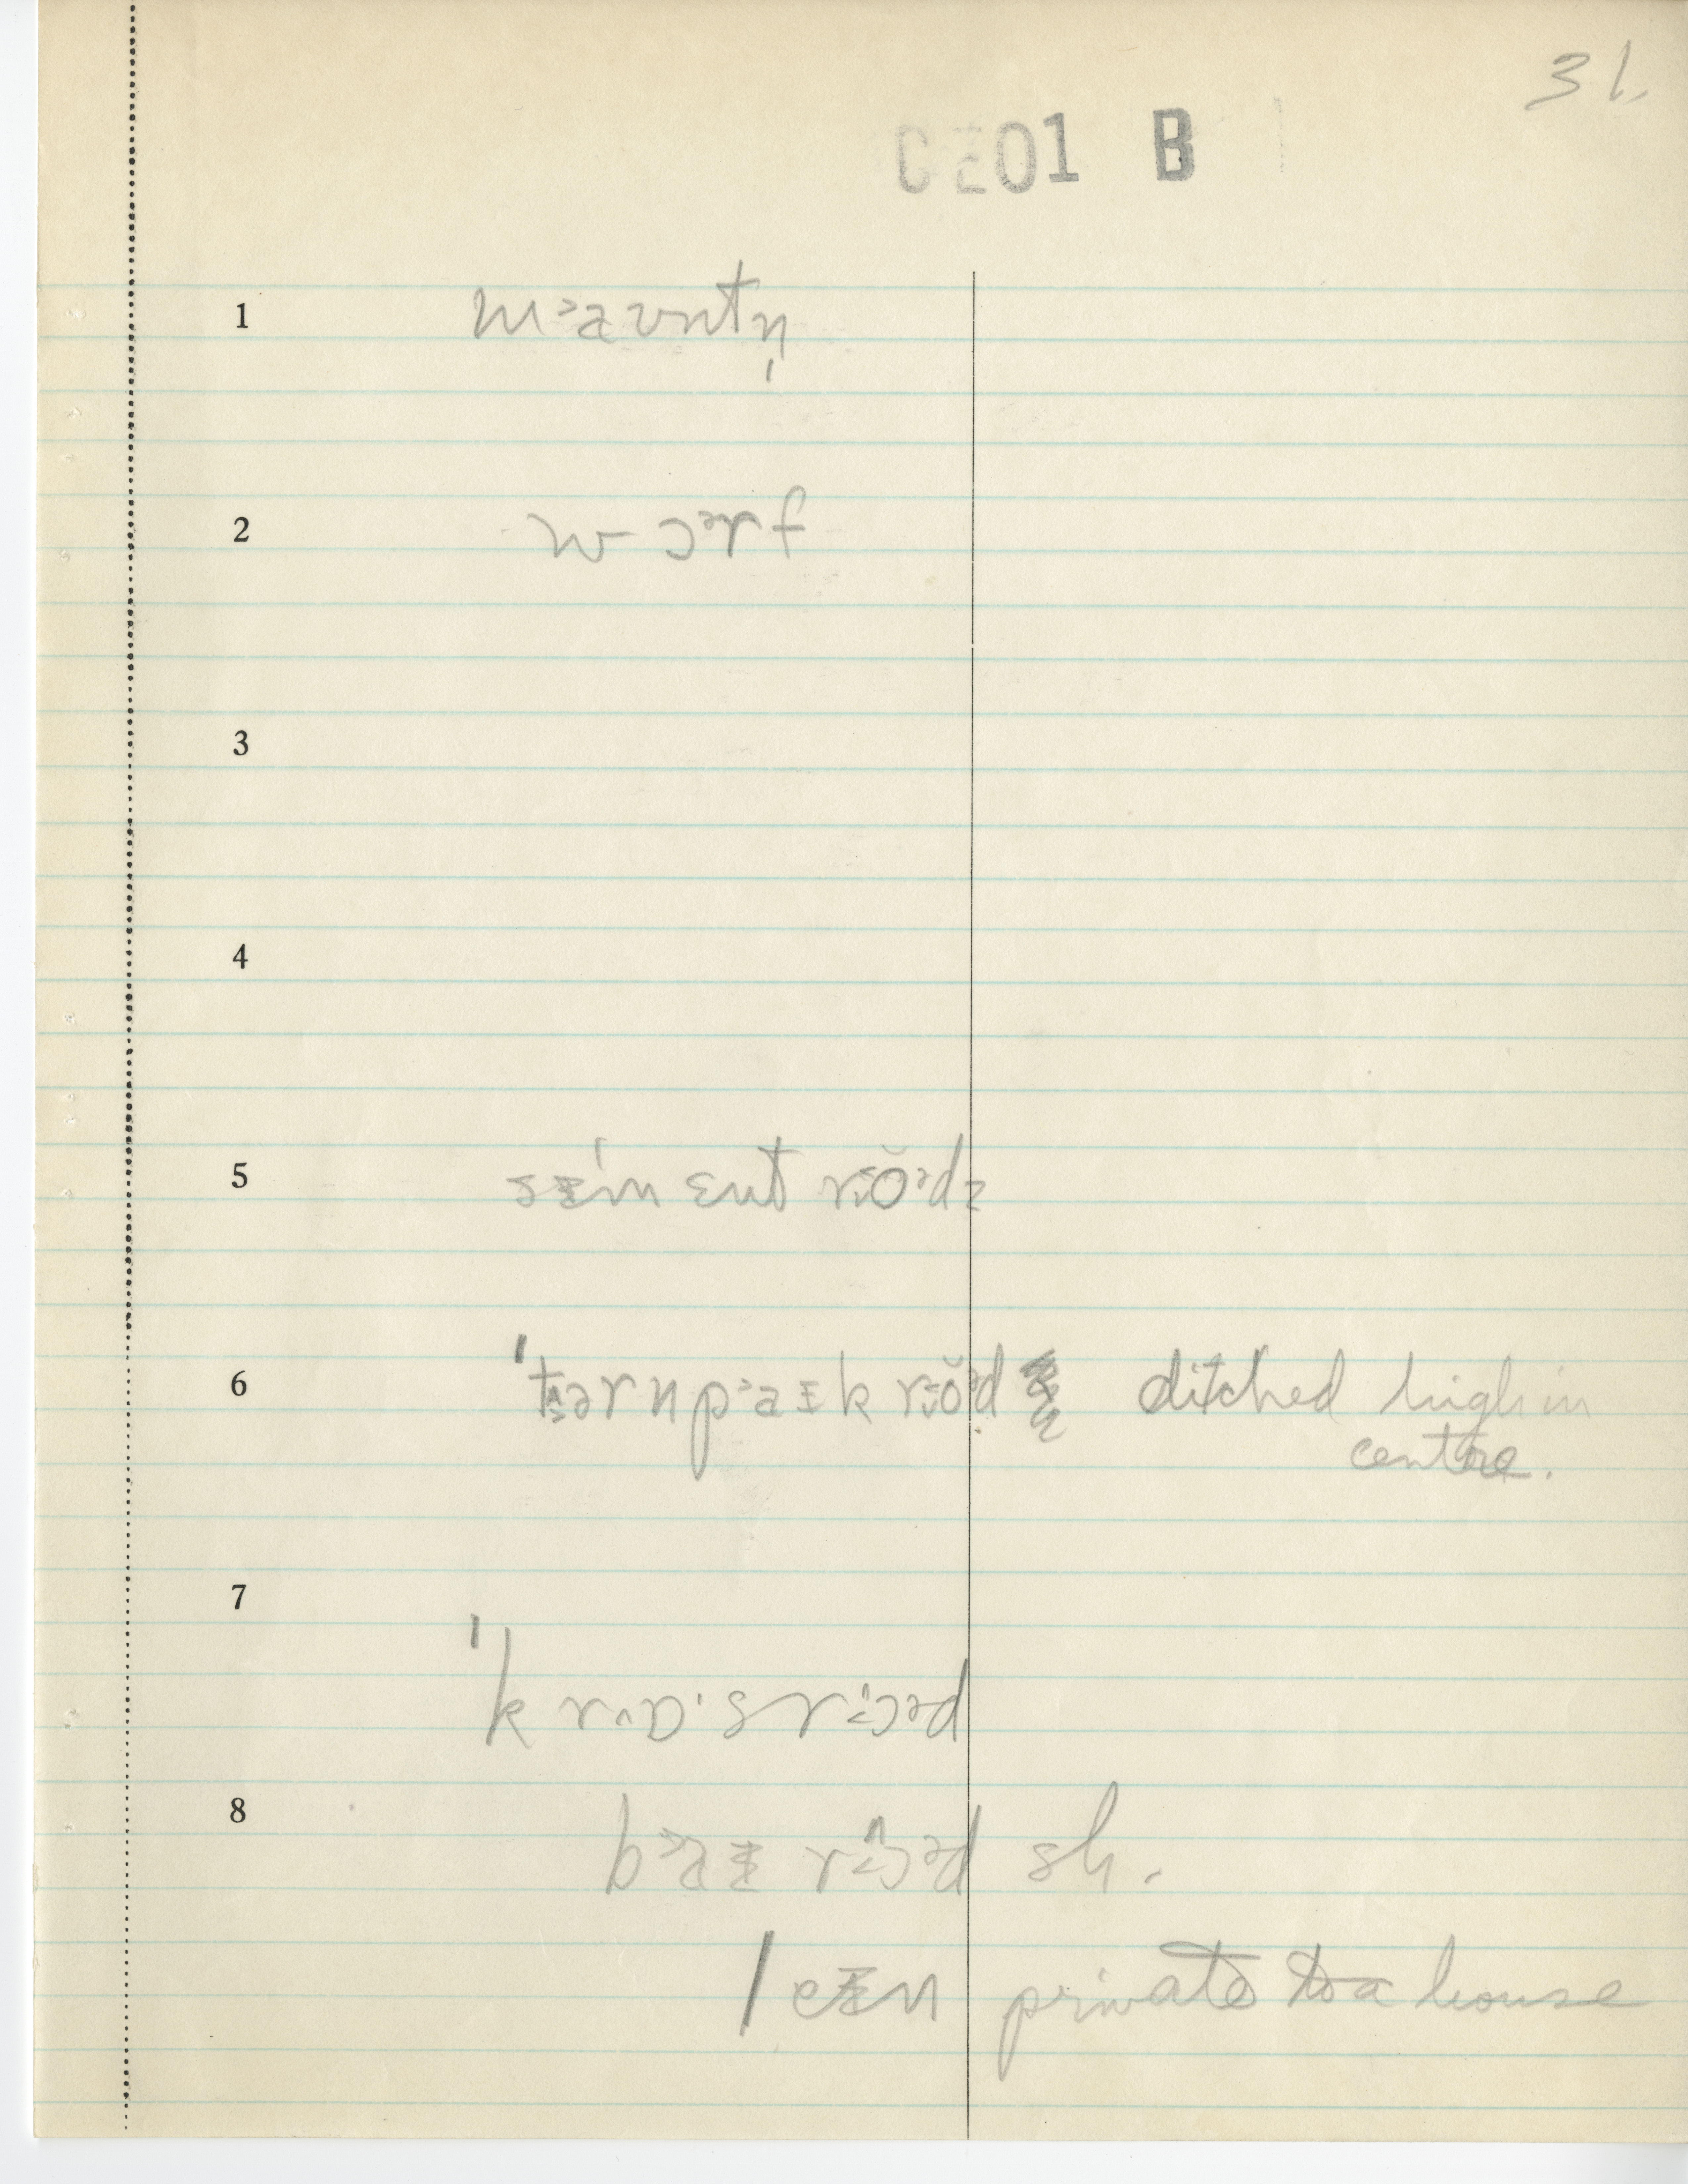 31.
CE01 B
1 m˃aʊntn̩
2 wɔᵊrf
3
4
5 sɪ'mɛnt roˇᵊdz
6 'tɜrnp˃aɪk roˇᵊd ditched high in
centre.
7 'krɒ·s rɔᵊd
8 b˃aɪ rɔᵊd sh.
leɪn private to a house